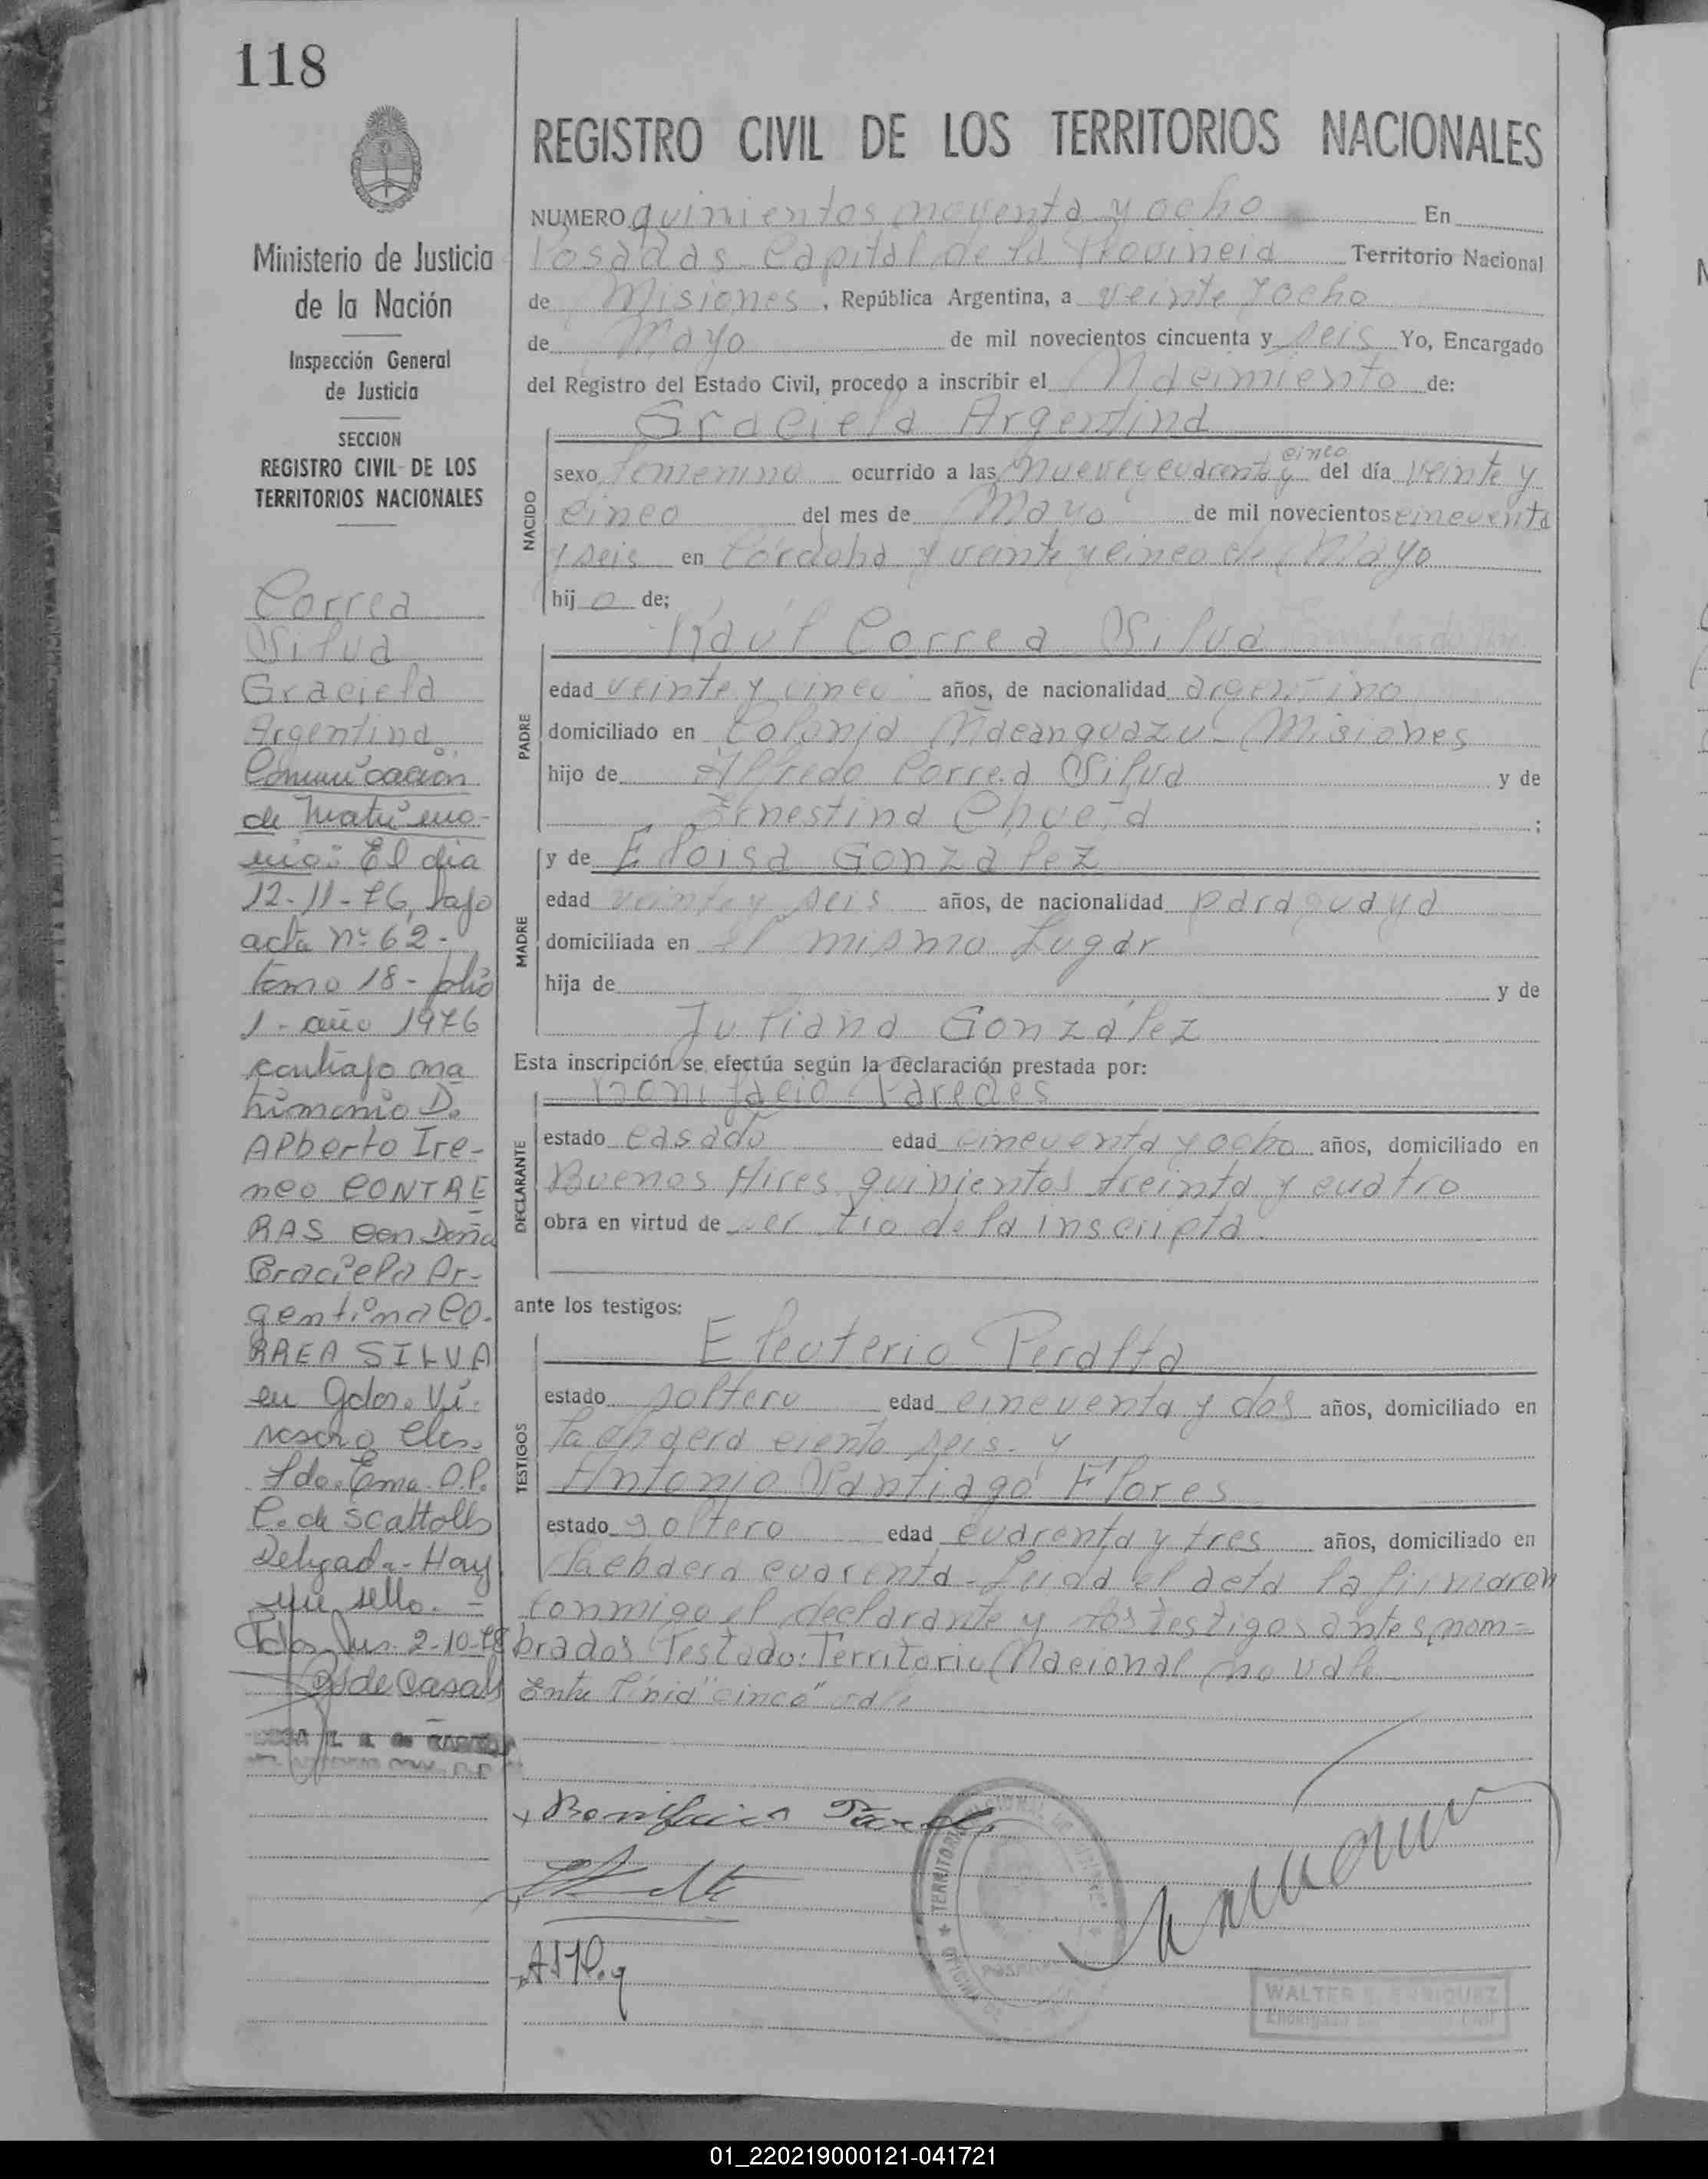 118
Ministerio de Justicia
de la Nación
Inspección General
de Justicia
SECCION
REGISTRO CIVIL DE LOS
TERRITORIOS NACIONALES
Correa
Silva
Graciela
Argentina
Comunicación
de Matrimo-
nio: El dia
12-11-76, bajo
acta nº 62-
tomo 18- folio
1- año 1976
contrajo ma
trimonio D.
Alberto Ire-
neo CONTRE
RAS con Doña
Graciela Ar-
gentina CO-
RREA SILVA
en Gdor. Vi-
rasoro Ctes.
Fdo. Ema O.P.
C. de Scattolls
Delgada- Hay
un sello. -
Pdas. 2-10-78
de Casals
REGISTRO CIVIL DE LOS TERRITORIOS NACIONALES
NUMERO quinientos noventa y ocho En
Posadas Capital de la Provincia Territorio Nacional
de Misiones, República Argentina, a veinte y ocho
de Mayo de mil novecientos cincuenta y seis Yo, Encargado
del Registro del Estado Civil, procedo a inscribir el Nacimiento de:
Graciela Argentina
NACIDO
sexo femenino ocurrido a las nueve y cuarenta y cinco del día veinte y
cinco del mes de Mayo de mil novecientos cincuenta
y seis en Córdoba y veinte y cinco de Mayo
hij a de;
Raúl Correa Silva
PADRE
edad veinte y cinco años, de nacionalidad argentino
domiciliado en Colonia Ñacanguazu- Misiones
hijo de Alfredo Correa Silva y de
Ernestina ;
y de Eloisa Gonzalez
MADRE
edad veinte y seis años, de nacionalidad paraguaya
domiciliada en el mismo lugar
hija de y de
Juliana González
Esta inscripción se efectúa según la declaración prestada por:
Bonifacio Paredes
DECLARANTE
estado casado edad cincuenta y ocho años, domiciliado en
Buenos Aires quinientos treinta y cuatro
obra en virtud de ser tio de la inscripta.
ante los testigos:
Eleuterio Peralta
TESTIGOS
estado soltero edad cincuenta y dos años, domiciliado en
La chacra ciento seis. y
Antonio Santiago Flores
estado soltero edad cuarenta y tres años, domiciliado en
La chacra cuarenta- Leida el acta la firmaron
conmigo el declarante y los testigos antes nom=
brados Testado: Territorio Nacional no vale
Entre linia "cinco" vale
Bonifacio Paredes
WALTER E. ENRIQUEZ
01_220219000121-041721